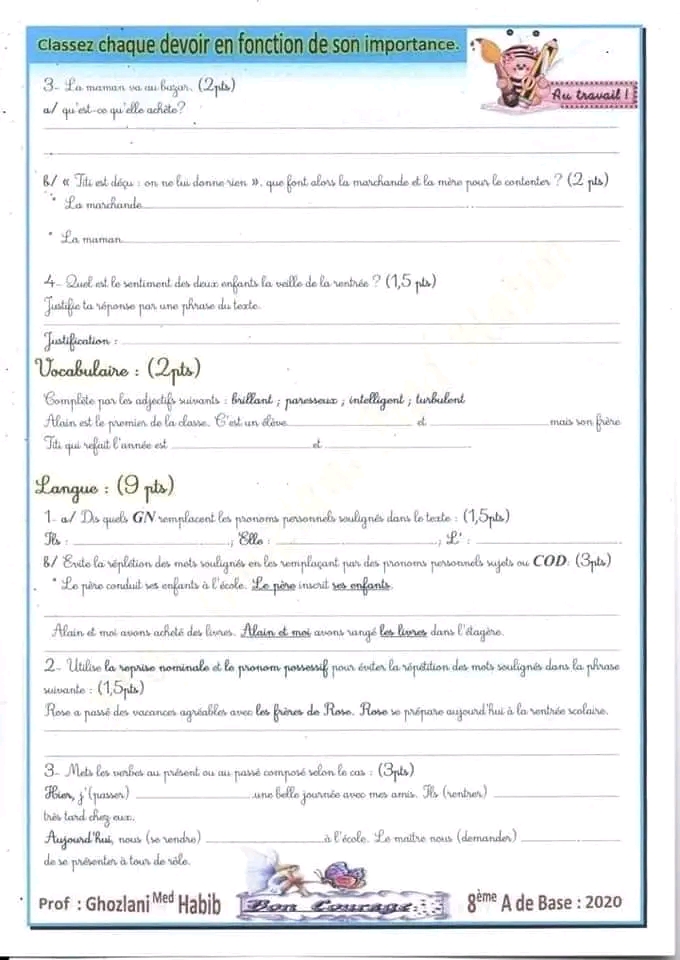 Classez chaque devoir en fonction de son importance.
Au travail !
3- La maman va au bazar. (2pts)
a/ qu'est-ce qu'elle achète?
b/ « Titi est déçu : on ne lui donne rien ». que font alors la marchande et la mère pour le contenter ? (2 pts)
* La marchande
* La maman
4- Quel est le sentiment des deux enfants la veille de la rentrée ? (1,5 pts)
Justifie ta réponse par une phrase du texte.
Justification :
Vocabulaire : (2pts)
Complète par les adjectifs suivants : brillant ; paresseux ; intelligent ; turbulent
Alain est le premier de la classe. C'est un élève et mais son frère
Titi qui refait l'année est et
Langue : (9 pts)
1- a/ Dis quels GN remplacent les pronoms personnels soulignés dans le texte : (1,5pts)
Ils : ; Elle : ; L' :
b/ Evite la répétition des mots soulignés en les remplaçant par des pronoms personnels sujets ou COD: (3pts)
* Le père conduit ses enfants à l'école. Le père inscrit ses enfants.
Alain et moi avons acheté des livres. Alain et moi avons rangé les livres dans l'étagère.
2- Utilise la reprise nominale et le pronom possessif pour éviter la répétition des mots soulignés dans la phrase
suivante : (1,5pts)
Rose a passé des vacances agréables avec les frères de Rose. Rose se prépare aujourd'hui à la rentrée scolaire.
3- Mets les verbes au présent ou au passé composé selon le cas : (3pts)
Hier, j'(passer) une belle journée avec mes amis. Ils (rentrer)
très tard chez eux.
Aujourd'hui, nous (se rendre) à l'école. Le maître nous (demander)
de se présenter à tour de rôle.
Prof : Ghozlani Med Habib
Bon Courage
8ème A de Base : 2020